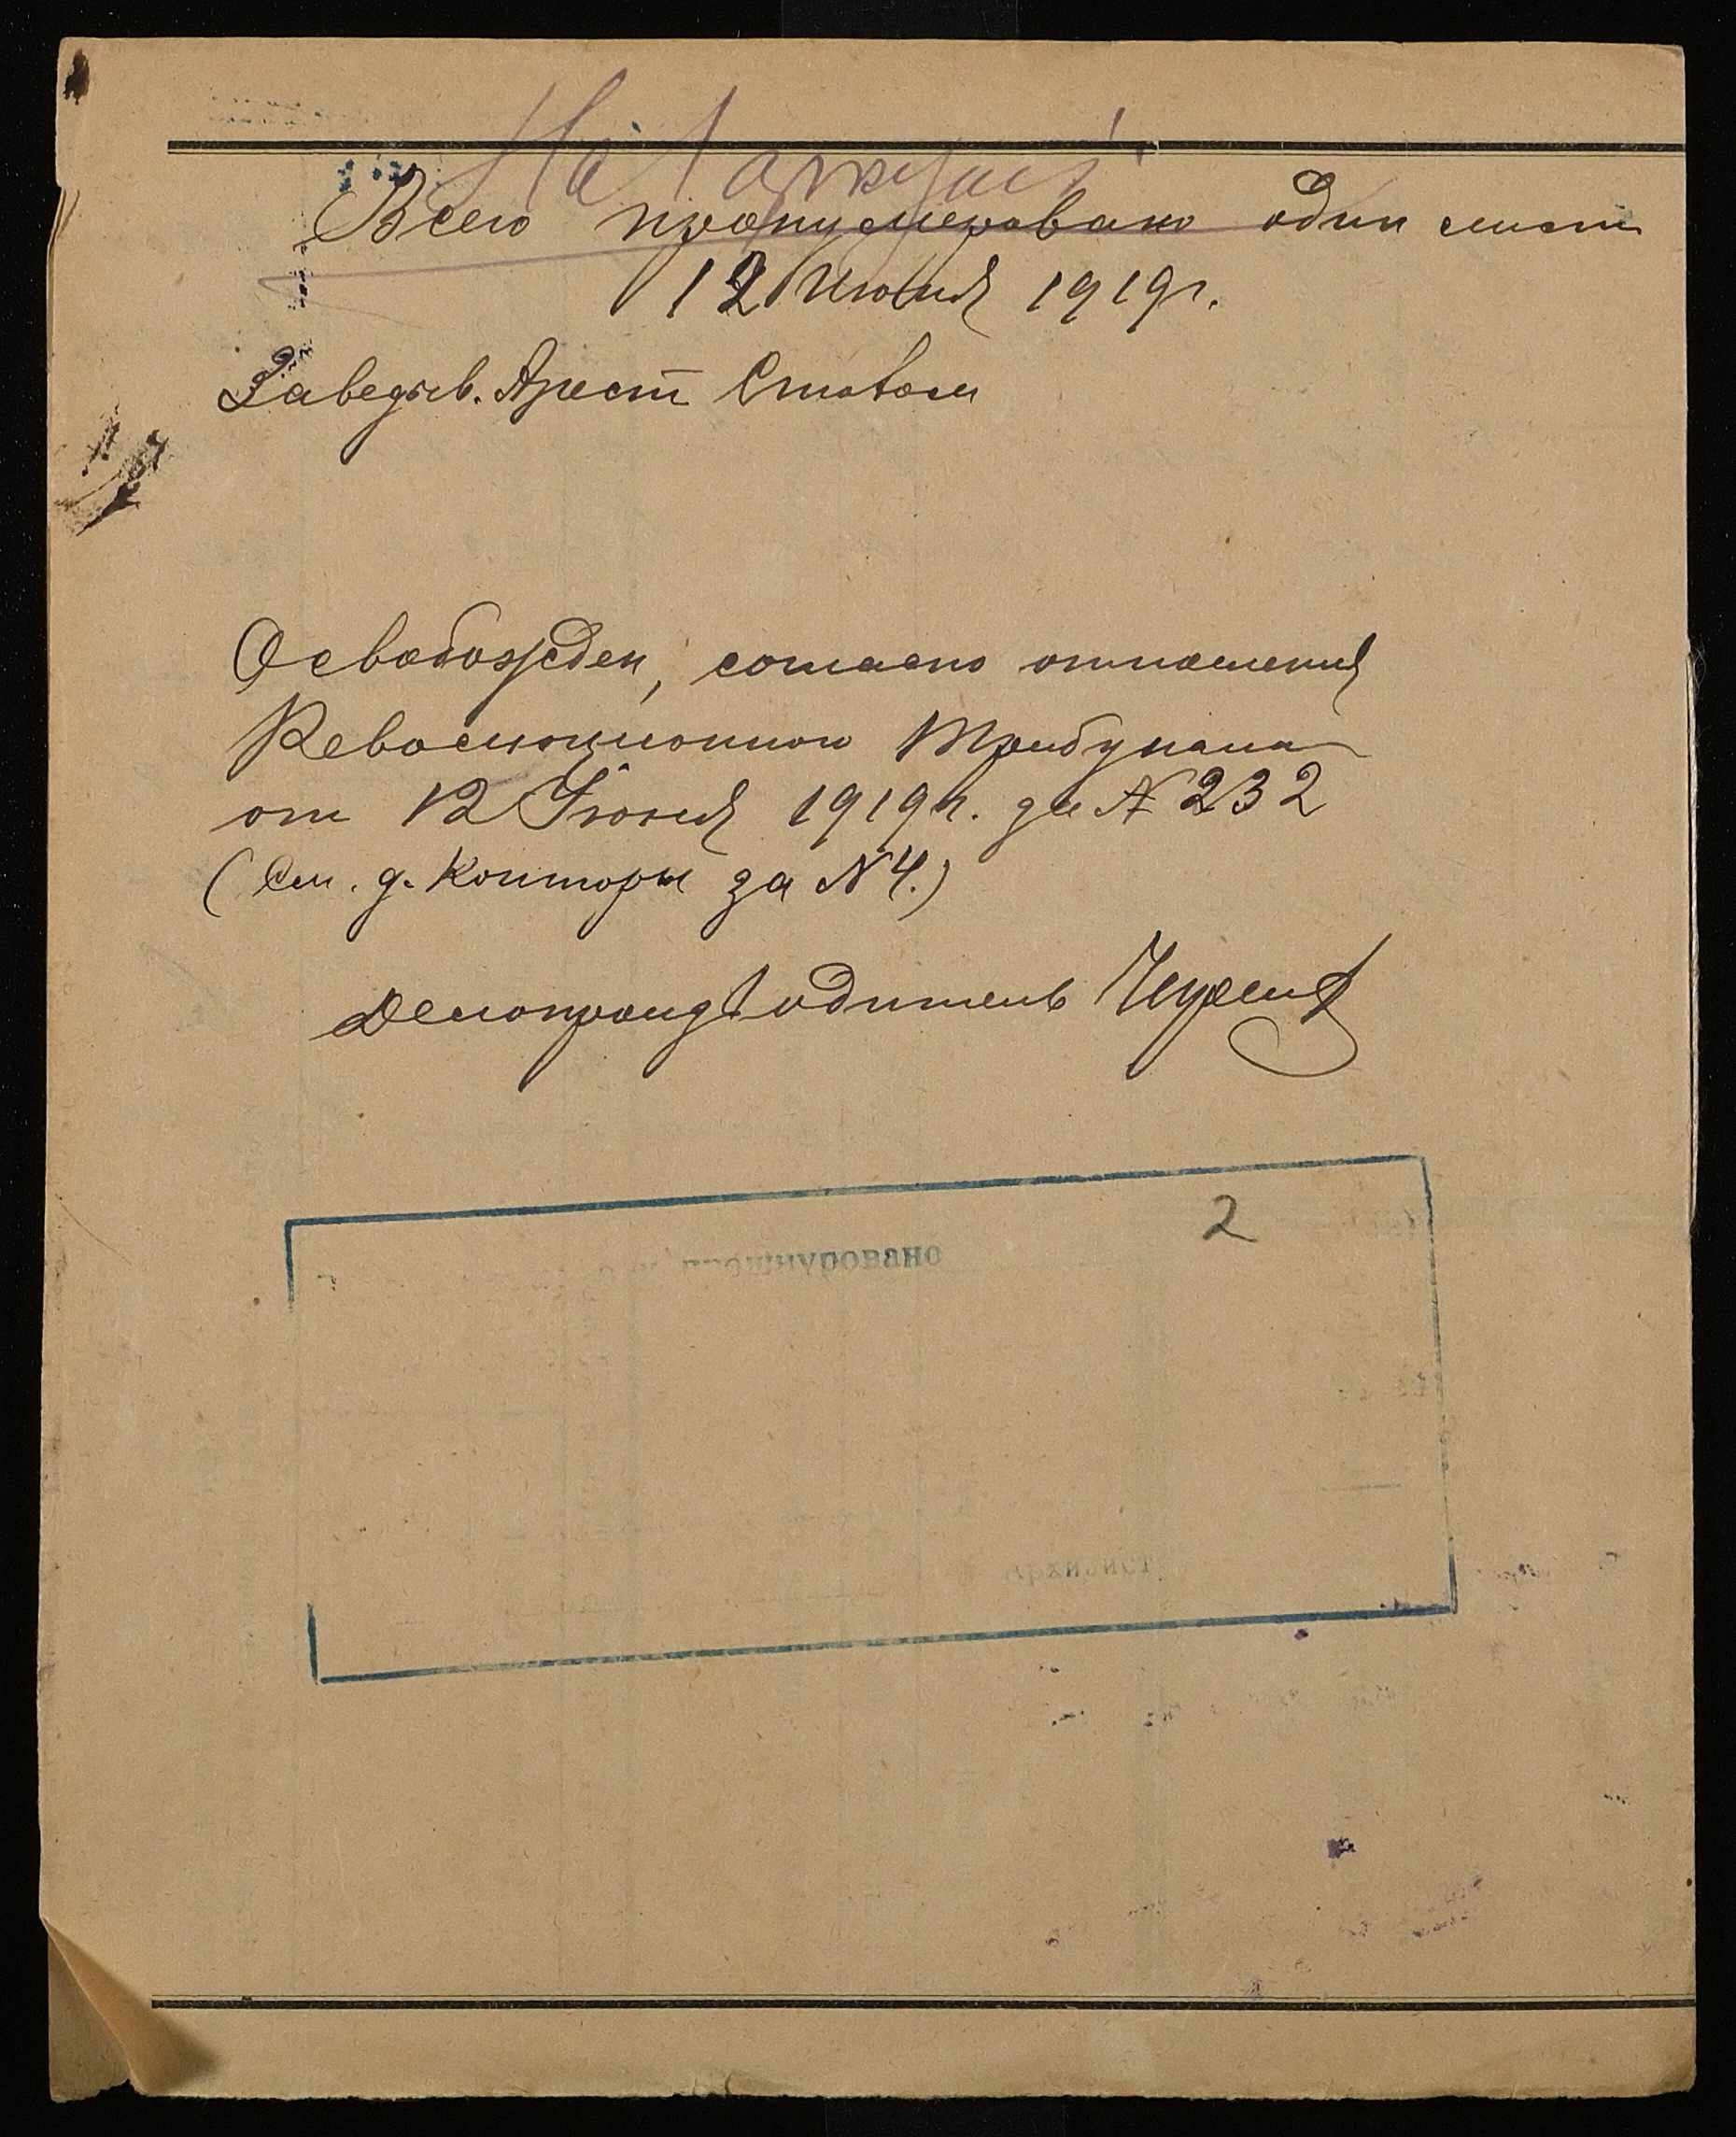 Всего пронумеровано один лист
12 Июня 1919 г.
Заведыв. Арест Столом
Освобожден, согласно отношения
Революционного Трибунала
от 12 Іюня 1919 г. за № 232
(См. д. Конторы за № 4.)
Делопроизводитель
2
прошнуровано
Архивист